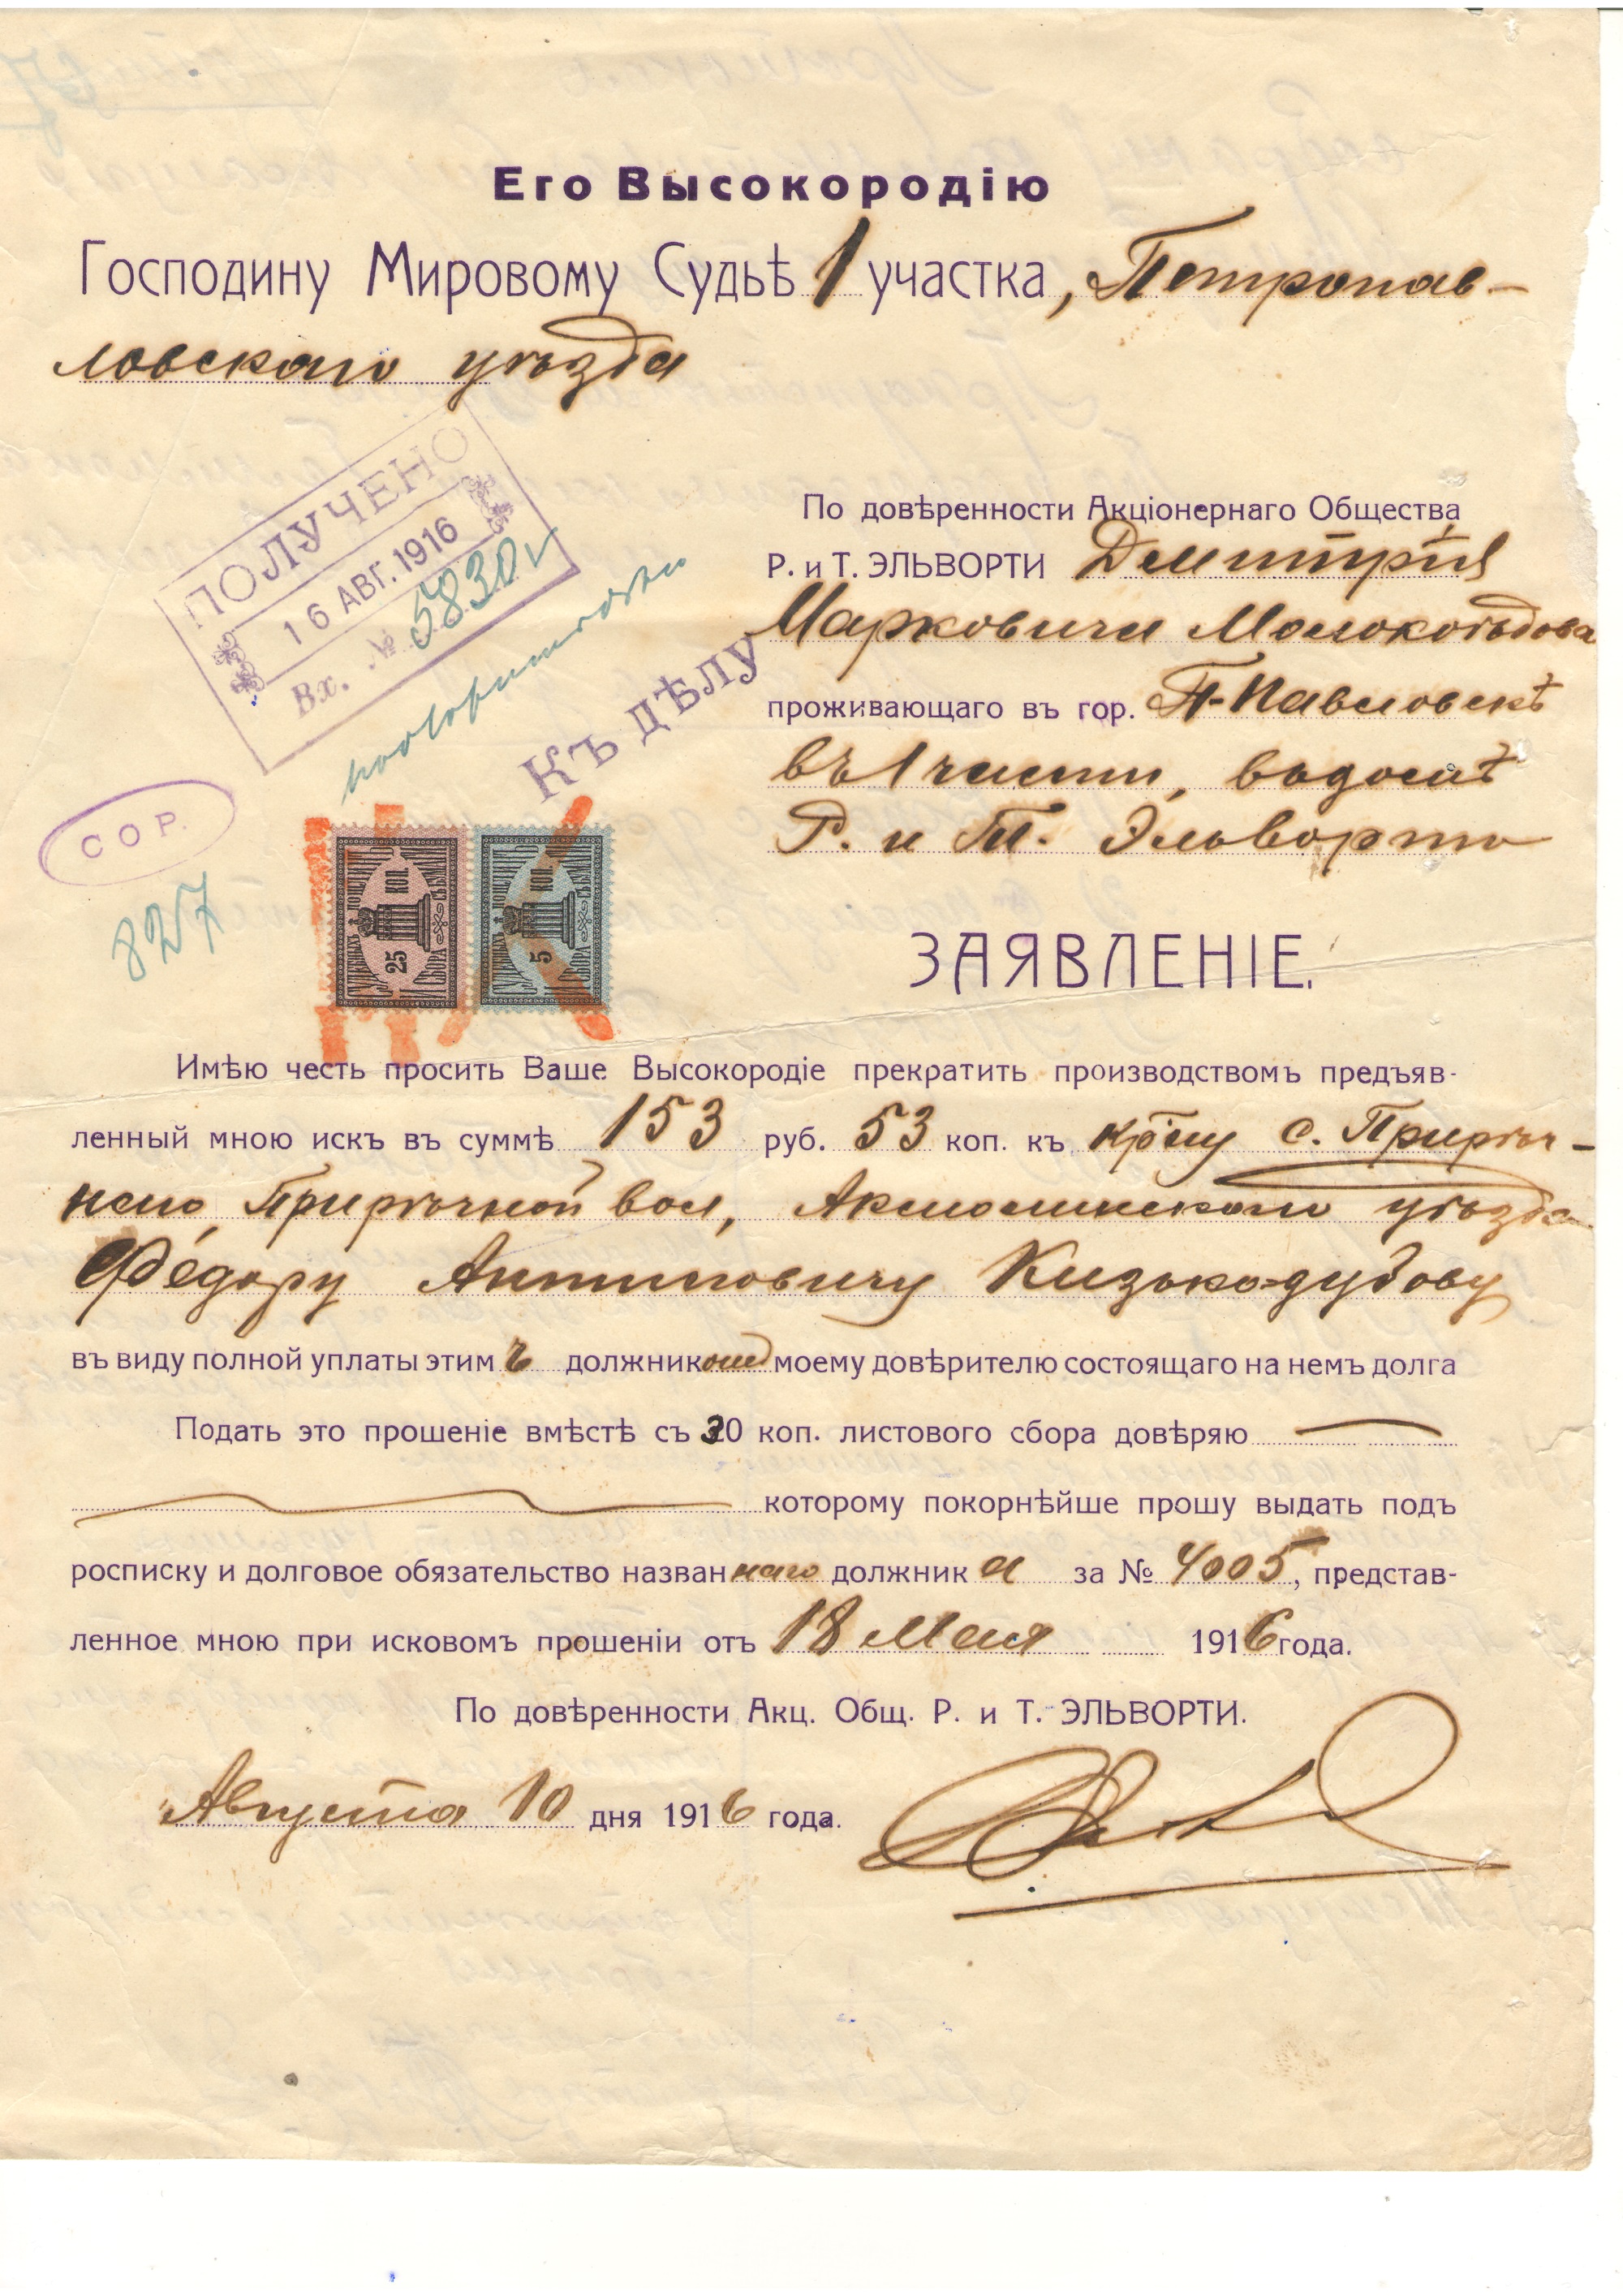 Его Высокородію
Господину Мировому Судьѣ 1 участка, Петропав-
ловскаго уѣзда
ПОЛУЧЕНО
16 АВГ. 1916
Вх. № 5830
Къ дѣлу
СОР.
827
По довѣренности Акціонернаго Общества
Р. и Т. ЭЛЬВОРТИ Дмитрія
Марковича Молокоѣдова
проживающаго въ гор. П-Павловскѣ
въ 1 части, въ домѣ
Р. и Т. Эльворти
СУДЕБНЫХЪ ПОШЛИНЪ 25 КОП.
СУДЕБНЫХЪ ПОШЛИНЪ 5 КОП.
ЗАЯВЛЕНІЕ.
Имѣю честь просить Ваше Высокородіе прекратить производствомъ предъяв-
ленный мною искъ въ суммѣ 153 руб. 53 коп. къ кр-ну с. Прирѣч-
наго, Прирѣчной вол, Акмолинскаго уѣзда
Фёдору Антиповичу Кизько-дубову
въ виду полной уплаты этимъ должникомъ моему довѣрителю состоящаго на немъ долга
Подать это прошеніе вмѣстѣ съ 30 коп. листового сбора довѣряю
которому покорнѣйше прошу выдать подъ
росписку и долговое обязательство названнаго должника за № 4005, представ-
ленное мною при исковомъ прошеніи отъ 18 Мая 1916 года.
По довѣренности Акц. Общ. Р. и Т. ЭЛЬВОРТИ.
Августа 10 дня 1916 года.